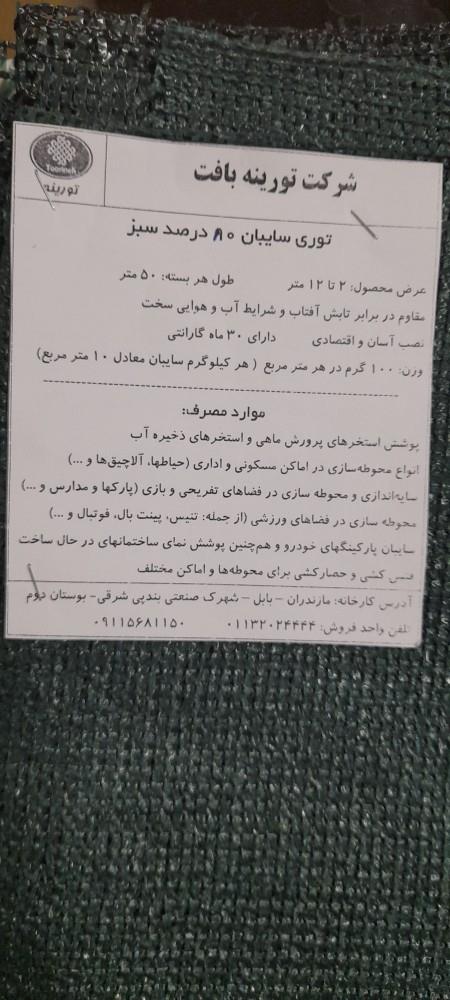 Toorineh
تورینه
شرکت تورینه بافت
توری سایبان ۸۰ درصد سبز
عرض محصول: ۲ تا ۱۲ متر طول هر بسته: ۵۰ متر
مقاوم در برابر تابش آفتاب و شرایط آب و هوایی سخت
نصب آسان و اقتصادی دارای ۳۰ ماه گارانتی
وزن: ۱۰۰ گرم در هر متر مربع ( هر کیلوگرم سایبان معادل ۱۰ متر مربع)
موارد مصرف:
پوشش استخرهای پرورش ماهی و استخرهای ذخیره آب
انواع محوطه‌سازی در اماکن مسکونی و اداری (حیاطها، آلاچیق‌ها و ...)
سایه‌اندازی و محوطه سازی در فضاهای تفریحی و بازی (پارکها و مدارس و ...)
محوطه سازی در فضاهای ورزشی (از جمله: تنیس، پینت بال، فوتبال و ...)
سایبان پارکینگهای خودرو و هم‌چنین پوشش نمای ساختمانهای در حال ساخت
فنس کشی و حصارکشی برای محوطه‌ها و اماکن مختلف
آدرس کارخانه: مازندران – بابل – شهرک صنعتی بندپی شرقی- بوستان دوم
تلفن واحد فروش: ۰۱۱۳۲۰۲۴۴۴۴ ۰۹۱۱۵۶۸۱۱۵۰